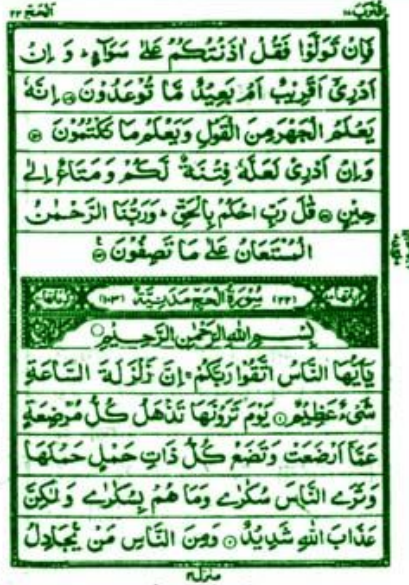 اقترب ١٧ الحج ٢٢
فَاِنْ تَوَلَّوْا فَقُلْ اٰذَنْتُكُمْ عَلٰى سَوَآءٍ ؕ وَ اِنْ
اَدْرِىْٓ اَقَرِيْبٌ اَمْ بَعِيْدٌ مَّا تُوْعَدُوْنَ ۝ اِنَّهٗ
يَعْلَمُ الْجَهْرَ مِنَ الْقَوْلِ وَيَعْلَمُ مَا تَكْتُمُوْنَ ۝
وَاِنْ اَدْرِىْ لَعَلَّهٗ فِتْنَةٌ لَّكُمْ وَمَتَاعٌ اِلٰى
حِيْنٍ ۝ قٰلَ رَبِّ احْكُمْ بِالْحَقِّ ؕ وَرَبُّنَا الرَّحْمٰنُ
الْمُسْتَعَانُ عَلٰى مَا تَصِفُوْنَ ۝
(٢٢) سُوْرَةُ الْحَجِّ مَدَنِيَّةٌ (١٠٣)
بِسْمِ اللّٰهِ الرَّحْمٰنِ الرَّحِيْمِ
يٰۤاَيُّهَا النَّاسُ اتَّقُوْا رَبَّكُمْ ۚ اِنَّ زَلْزَلَةَ السَّاعَةِ
شَىْءٌ عَظِيْمٌ ۝ يَوْمَ تَرَوْنَهَا تَذْهَلُ كُلُّ مُرْضِعَةٍ
عَمَّاۤ اَرْضَعَتْ وَتَضَعُ كُلُّ ذَاتِ حَمْلٍ حَمْلَهَا
وَتَرَى النَّاسَ سُكٰرٰى وَمَا هُمْ بِسُكٰرٰى وَلٰكِنَّ
عَذَابَ اللّٰهِ شَدِيْدٌ ۝ وَمِنَ النَّاسِ مَنْ يُّجَادِلُ
منزل ٤